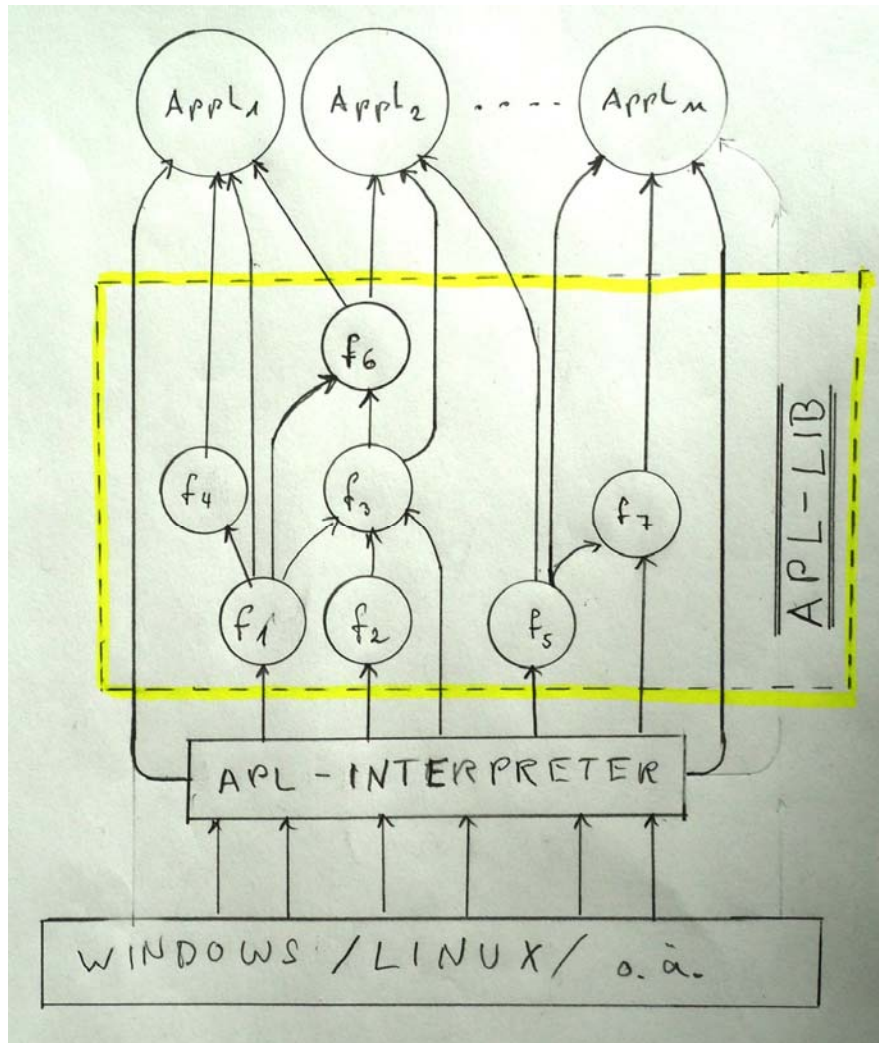 Appl₁ Appl₂ ..... Applₙ
f₆
f₄ f₃ f₇
f₁ f₂ f₅
APL-LIB
APL-INTERPRETER
WINDOWS / LINUX / o.ä.